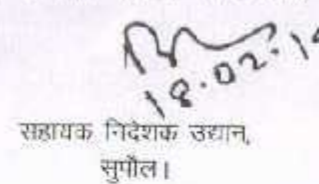 18.02.1
सहायक निदेशक उद्यान,
सुपौल।